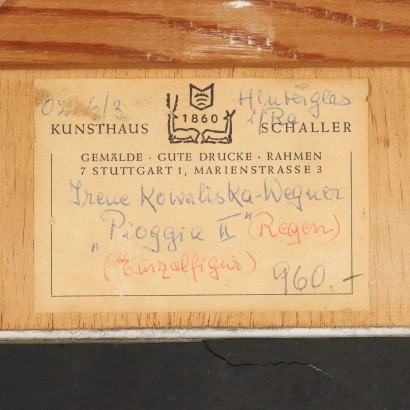 Hinterglas
1860
KUNSTHAUS SCHALLER
GEMÄLDE · GUTE DRUCKE · RAHMEN
7 STUTTGART 1, MARIENSTRASSE 3
Irene Kowaliska-Wegner
„Pioggia II" (Regen)
(Einzelfigur)
960.-